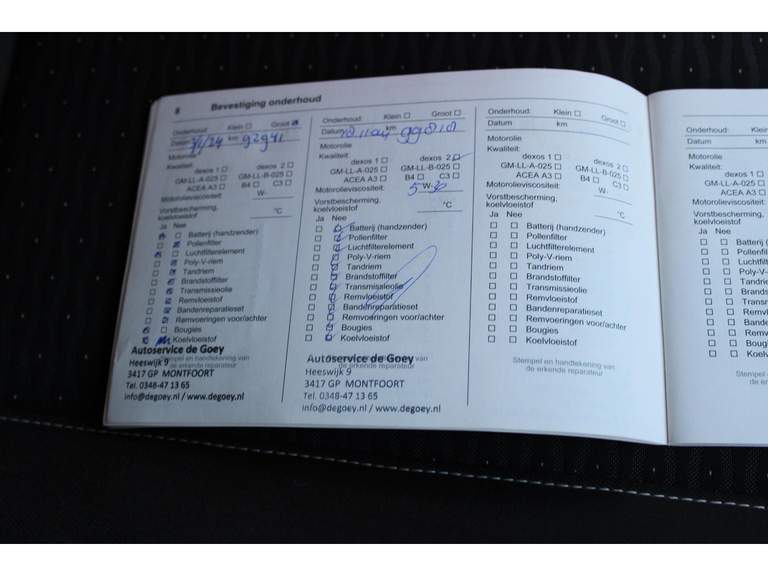 8 Bevestiging onderhoud
Onderhoud: Klein Groot
Datum km 92941
Motorolie
Kwaliteit: dexos 1 dexos 2
GM-LL-A-025 GM-LL-B-025
ACEA A3 B4 C3
Motorolieviscositeit: W-
Vorstbescherming, koelvloeistof °C
Ja Nee
Batterij (handzender)
Pollenfilter
Luchtfilterelement
Poly-V-riem
Tandriem
Brandstoffilter
Transmissieolie
Remvloeistof
Bandenreparatieset
Remvoeringen voor/achter
Bougies
Koelvloeistof
Stempel en handtekening van
de erkende reparateur
Autoservice de Goey
Heeswijk 9
3417 GP MONTFOORT
Tel. 0348-47 13 65
info@degoey.nl / www.degoey.nl
Onderhoud: Klein Groot
Datum km
Motorolie
Kwaliteit: dexos 1 dexos 2
GM-LL-A-025 GM-LL-B-025
ACEA A3 B4 C3
Motorolieviscositeit: 5 W- 30
Vorstbescherming,
koelvloeistof °C
Ja Nee
Batterij (handzender)
Pollenfilter
Luchtfilterelement
Poly-V-riem
Tandriem
Brandstoffilter
Transmissieolie
Remvloeistof
Bandenreparatieset
Remvoeringen voor/achter
Bougies
Koelvloeistof
Stempel en handtekening van
de erkende reparateur
Autoservice de Goey
Heeswijk 9
3417 GP MONTFOORT
Tel. 0348-47 13 65
info@degoey.nl / www.degoey.nl
Onderhoud: Klein Groot
Datum km
Motorolie
Kwaliteit: dexos 1 dexos 2
GM-LL-A-025 GM-LL-B-025
ACEA A3 B4 C3
Motorolieviscositeit: W-
Vorstbescherming,
koelvloeistof °C
Ja Nee
Batterij (handzender)
Pollenfilter
Luchtfilterelement
Poly-V-riem
Tandriem
Brandstoffilter
Transmissieolie
Remvloeistof
Bandenreparatieset
Remvoeringen voor/achter
Bougies
Koelvloeistof
Stempel en handtekening van
de erkende reparateur
Onderhoud: Klein
Datum km
Motorolie
Kwaliteit:
dexos 1
GM-LL-A-025
ACEA A3
Motorolieviscositeit:
Vorstbescherming,
koelvloeistof
Ja Nee
Batterij (
Pollenfilt
Luchtfilt
Poly-V-
Tandrie
Brands
Transm
Remvl
Bander
Remvo
Boug
Koelv
Stempel
de e